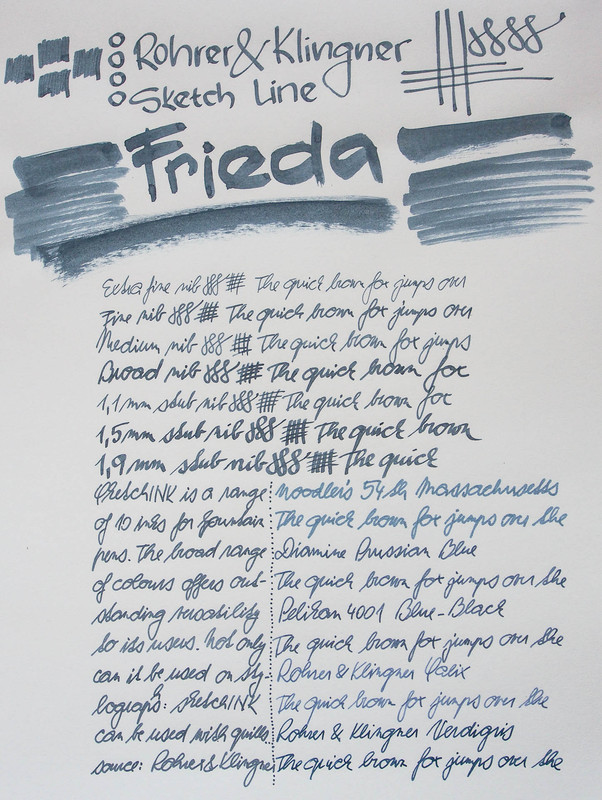 Rohrer & Klingner
Sketch Line
Frieda
Extra fine nib The quick brown fox jumps over
Fine nib The quick brown fox jumps over
Medium nib The quick brown fox jumps
Broad nib The quick brown fox
1,1mm stub nib The quick brown fox
1,5mm stub nib The quick brown
1,9 mm stub nib The quick
SketchINK is a range
of 10 inks for fountain
pens. The broad range
of colours offers out-
standing versatility
to its users. Not only
can it be used on sty-
lograph: sketchINK
can be used with quills
source: Rohrer & Klingner
Noodler's 54th Massachusetts
The quick brown fox jumps over the
Diamine Prussian Blue
The quick brown fox jumps over the
Pelikan 4001 Blue-Black
The quick brown fox jumps over the
Rohrer & Klingner Salix
The quick brown fox jumps over the
Rohrer & Klingner Verdigris
The quick brown fox jumps over the